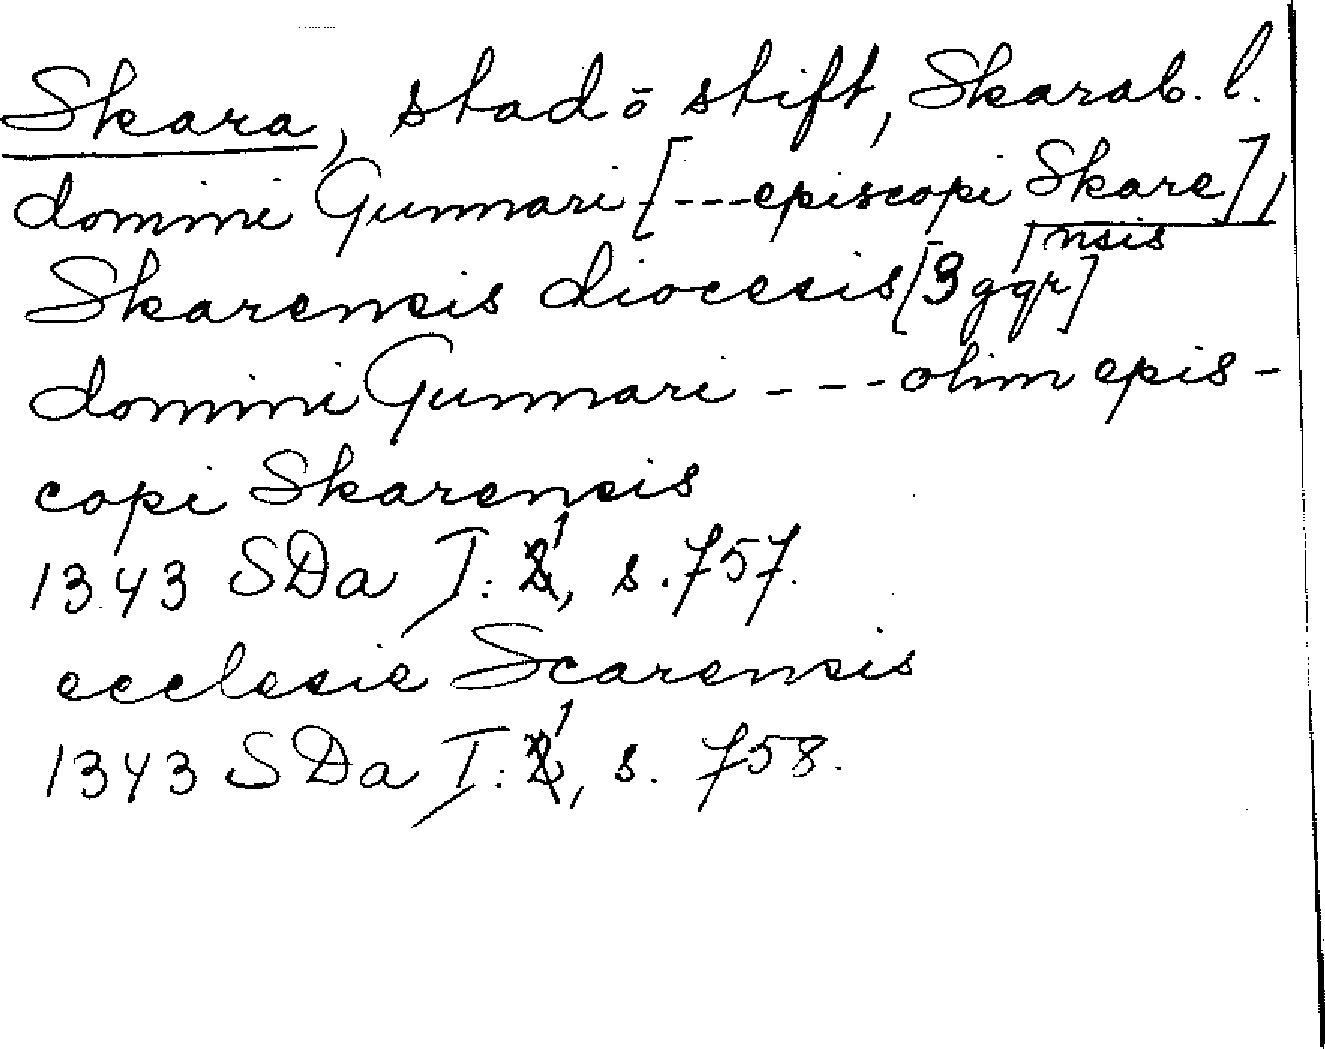 Skara, stad o stift, Skarab. l.
domini Gunnari [---episcopi Skare],
nsis
Skarensis diocesis [3 ggr]
domini Gunnari ---- olim epis-
copi Skarensis
1343 SDa I:1, s. 757.
ecclesie Scarensis
1343 SDa I:1, s. 758.